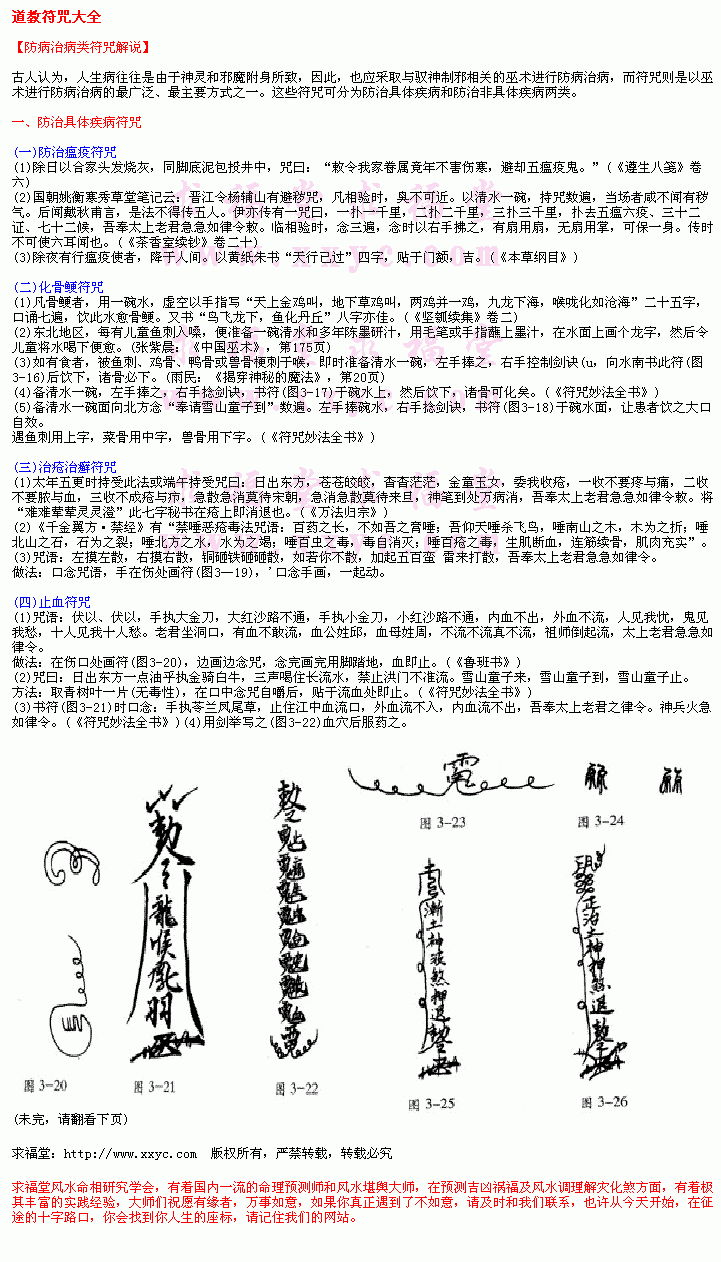 道教符咒大全
【防病治病类符咒解说】
古人认为，人生病往往是由于神灵和邪魔附身所致，因此，也应采取与驭神制邪相关的巫术进行防病治病，而符咒则是以巫
术进行防病治病的最广泛、最主要方式之一。这些符咒可分为防治具体疾病和防治非具体疾病两类。
一、防治具体疾病符咒
(一)防治瘟疫符咒
(1)除日以合家头发烧灰，同脚底泥包投井中，咒曰：“敕令我家眷属竟年不害伤寒，避却五瘟疫鬼。”(《遵生八笺》卷
六)
(2)国朝姚衡寒秀草堂笔记云：晋江令杨辅山有避秽咒，凡相验时，臭不可近。以清水一碗，持咒数遍，当场者咸不闻有秽
气。后闻戴秋甫言，是法不得传五人。伊亦传有一咒曰，一扑一千里，二扑二千里，三扑三千里，扑去五瘟六疫、三十二
证、七十二候，吾奉太上老君急急如律令敕。临相验时，念三遍，念时以右手拂之，有扇用扇，无扇用掌，可保一身。传时
不可使六耳闻也。(《茶香室续钞》卷二十)
(3)除夜有行瘟疫使者，降于人间。以黄纸朱书“天行已过”四字，贴于门额，吉。(《本草纲目》)
(二)化骨鲠符咒
(1)凡骨鲠者，用一碗水，虚空以手指写“天上金鸡叫，地下草鸡叫，两鸡并一鸡，九龙下海，喉咙化如沧海”二十五字，
口诵七遍，饮此水愈骨鲠。又书“鸟飞龙下，鱼化丹丘”八字亦佳。(《坚瓠续集》卷二)
(2)东北地区，每有儿童鱼刺入嗓，便准备一碗清水和多年陈墨研汁，用毛笔或手指蘸上墨汁，在水面上画个龙字，然后令
儿童将水喝下便愈。(张紫晨：《中国巫术》，第175页)
(3)如有食者，被鱼刺、鸡骨、鸭骨或兽骨梗刺于喉，即时准备清水一碗，左手捧之，右手控制剑诀(u，向水南书此符(图
3-16)后饮下，诸骨必下。(雨民：《揭穿神秘的魔法》，第20页)
(4)备清水一碗，左手捧之，右手捻剑诀，书符(图3-17)于碗水上，然后饮下，诸骨可化矣。(《符咒妙法全书》)
(5)备清水一碗面向北方念“奉请雪山童子到”数遍。左手捧碗水，右手捻剑诀，书符(图3-18)于碗水面，让患者饮之大口
自效。
遇鱼刺用上字，菜骨用中字，兽骨用下字。(《符咒妙法全书》)
(三)治疮治癣符咒
(1)太年五更时持受此法或端午持受咒曰：日出东方，苍苍皎皎，杳杳茫茫，金童玉女，委我收疮，一收不要疼与痛，二收
不要脓与血，三收不成疮与疖，急散急消莫待宋朝，急消急散莫待来旦，神笔到处万病消，吾奉太上老君急急如律令敕。将
“难难辇辇灵灵澄”此七字秘书在疮上即消退也。(《万法归宗》)
(2)《千金翼方·禁经》有“禁唾恶疮毒法咒语：百药之长，不如吾之膏唾；吾仰天唾杀飞鸟，唾南山之木，木为之折；唾
北山之石，石为之裂；唾北方之水，水为之竭；唾百虫之毒，毒自消灭；唾百疮之毒，生肌断血，连筋续骨，肌肉充实”。
(3)咒语：左摸左散，右摸右散，铜砸铁砸砸散，如若你不散，加起五百蛮 雷来打散，吾奉太上老君急急如律令。
做法：口念咒语，手在伤处画符(图3—19)，'口念手画，一起动。
(四)止血符咒
(1)咒语：伏以、伏以，手执大金刀，大红沙路不通，手执小金刀，小红沙路不通，内血不出，外血不流，人见我忧，鬼见
我愁，十人见我十人愁。老君坐洞口，有血不敢流，血公姓邱，血母姓周，不流不流真不流，祖师倒起流，太上老君急急如
律令。
做法：在伤口处画符(图3-20)，边画边念咒，念完画完用脚踏地，血即止。(《鲁班书》)
(2)咒曰：日出东方一点油乎执金骑白牛，三声喝住长流水，禁止洪门不准流。雪山童子来，雪山童子到，雪山童子止。
方法：取青树叶一片(无毒性)，在口中念咒自嚼后，贴于流血处即止。(《符咒妙法全书》)
(3)书符(图3-21)时口念：手执苓兰凤尾草，止住江中血流口，外血流不入，内血流不出，吾奉太上老君之律令。神兵火急
如律令。(《符咒妙法全书》)(4)用剑举写之(图3-22)血穴后服药之。
图 3-23
图 3-24
图 3-20
图 3-21
图 3-22
图 3-25
图 3-26
(未完，请翻看下页)
求福堂：http://www.xxyc.com 版权所有，严禁转载，转载必究
求福堂风水命相研究学会，有着国内一流的命理预测师和风水堪舆大师，在预测吉凶祸福及风水调理解灾化煞方面，有着极
其丰富的实践经验，大师们祝愿有缘者，万事如意，如果你真正遇到了不如意，请及时和我们联系，也许从今天开始，在征
途的十字路口，你会找到你人生的座标，请记住我们的网站。